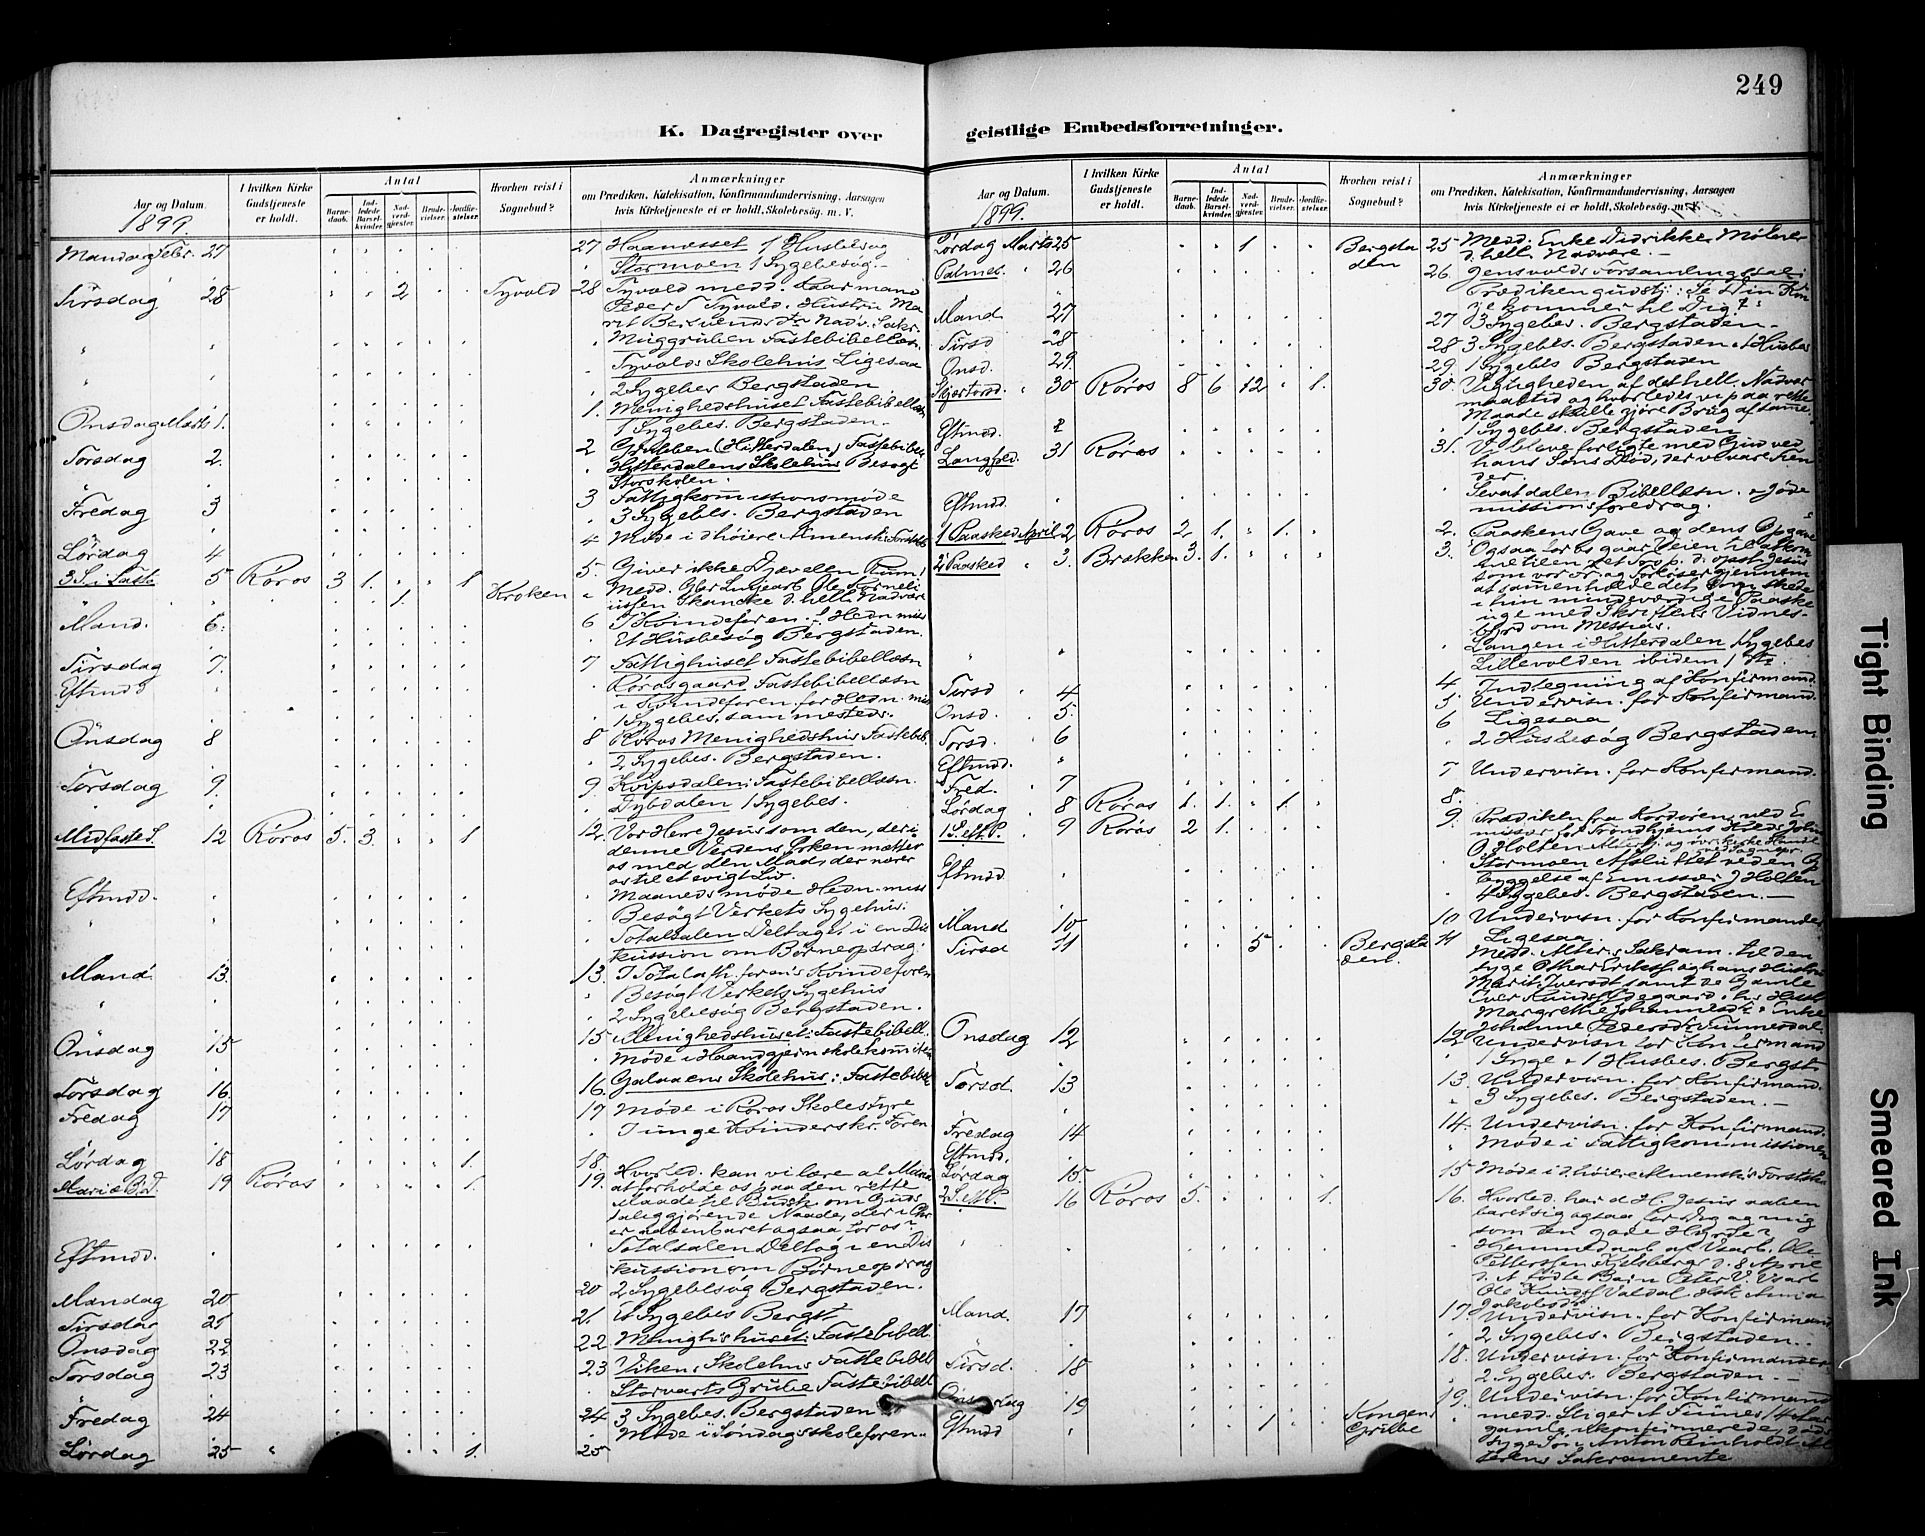 249
K. Dagregister over geistlige Embedsforretninger.
Aar og Datum.
I hvilken Kirke Gudstjeneste er holdt.
Antal
Barne-daab.
Ind-ledede Barsel-kvinder.
Nad-verd-gjester.
Brude-vielser.
Jordfæ-stelser.
Hvorhen reist i Sognebud?
Anmærkninger
om Prædiken, Katekisation, Konfirmandundervisning, Aarsagen
hvis Kirketjeneste ei er holdt, Skolebesøg. m. V.
1899.
Mandag Febr. 27 27 Haanesset 1 Husbesøg
Stormoen 1 Sygebesøg.
Tirsdag 28 2 Tyvold 28 Tyvold medd. Kaarmand
Peder Tyvold. Hustru
Nadv. Sakr.
Muggruben Fastebibellæsn.
Tyvolds Skolehus Ligesaa
2 Sygebes Bergstaden
Onsdag Marts 1. 1. Menighedshuset Fastebibellæsn
1 Sygebes. Bergstaden.
Torsdag 2. 2 (Hitterdalen) Fastebibel
Hitterdalens Skolehus Besøgt
Storskolen.
Fredag 3 3 Fattigkommissionsmøde
3 Sygebes. Bergstaden
Lørdag 4 4 Møde i
3 S. i Faste 5 Røros 3 1. 8 5. Giver ikke Djævelen Rum!
1. Kroken Medd.
Skancke d. hell. Nadvere
Mand. 6. 6 I Kvindeforen. f. Hedn. miss
Et Husbesøg Bergstaden.
Tirsdag 7. 7 Fattighuset Fastebibellæsn
Eftmdd Rørosgaard Fastebibellæsn
i Kvindeforen. for Hedn. miss
1 Sygebes. sammesteds.
Onsdag 8 8 Røros Menighedshus Fastebib.
2 Sygebes. Bergstaden.
Torsdag 9 9 Kvipsdalen: Fastebibellæsn.
Dybdalen 1 Sygebes.
Midfaste S. 12 Røros 5. 3. 1 12. Vor Herre Jesus som den, der i
denne Verdens Ørken mætter
os med den Mad, der nærer
os til et evigt Liv.
Eftmdd. Maanedsmøde Hedn. miss
Besøgt Verkets Sygehus.
Totalsalen Deltaget i en Dis
kussion om Børneopdrag.
Mand. 13. 13. I Kvindeforen
Besøgt Verkets Sygehus
2 Sygebesøg Bergstaden.
Onsdag 15 15 Menighedshuset: Fastebibell.
Møde i
Torsdag 16. 16. Galaaens Skolehus: Fastebibel
Fredag 17 17 Møde i Røros Skolestyre
I unge Kvinders kr. Foren
Lørdag 18 1. 18.
Mariæ B. D. 19 Røros 1. 19. Hvorled. kan vi lære af Maria
at forholde os paa den rette
Maade til Budsk. om Guds
saliggjørende Naade, der i Chr
er aabenbaret ogsaa for os?
Eftmdd. Totalsalen Deltog i en Dis
kussion om Børneopdrag
Mandag 20 20 2 Sygebesøg Bergstaden.
Tirsdag 21 21. Sygebes Bergst
Onsdag 22 22 Menigh. huset: Fastebibell
Torsdag 23 23 Vikens Skolehus Fastebibell
Storvarts Grube Fastebibell
Fredag 24 24 3 Sygebes. Bergstaden
Møde i Søndagsskoleforen.
Lørdag 25 1. 25
Aar og Datum.
I hvilken Kirke Gudstjeneste er holdt.
Antal
Barne-daab.
Ind-ledede Barsel-kvinder.
Nad-verd-gjester.
Brude-vielser.
Jordfæ-stelser.
Hvorhen reist i Sognebud?
Anmærkninger
om Prædiken, Katekisation, Konfirmandundervisning, Aarsagen
hvis Kirketjeneste ei er holdt, Skolebesøg. m. V.
1899.
Lørdag Marts 25 1 Bergsta 25 Medd. Enke Didrikke
den d. hell. Nadvere.
Palmes. 26 26. Jensvolds Forsamlingssal:
Prædikengudstj: Se Din Kon
ge kommer til Dig!
Mand 27 27 3 Sygebes. Bergstaden.
Tirsd 28 28 3 Sygebes. Bergstaden 1 Husbes
Onsd. 29 29. 1 Sygebes Bergstaden
Skjærtorsd. 30 Røros 8 6 12 1. 30. Vigtigheden af det hell. Nadver
maaltid og hvorledes vi paa rette
Maade skulle gjøre Brug af samme
Eftmdd. 1 Sygebes. Bergstaden
Langfred. 31 Røros 31. Vi bleve forligte med Gud ved
hans Søns Død, der vi vare Fien
der.
Eftmdd. Sevatdalen Bibellæsn. & Jøde
missionsforedrag.
1 Paasked April 2 Røros 2. 1. 1. 2. Paaskens Gave og dens Opgave
2 Paasked 3. Brækken 3. 1. 3. Ogsaa for os gaar Veien til at kom
me til en
som vor og Forløser gjennem
at sammenholde det, som skede
i hin mindeværdige Paaske
uge med Skriftens Vidnes
byrd om Messias.
Langen i Hitterdalen 1 Sygebes
Lillevolden ibidem 1
Tirsd 4 4. Indtegning af Konfirmand.
Onsd. 5. 5. Undervisn. for Konfirmand
Torsd. 6 6 Ligesaa
Eftmdd. 2 Husbesøg Bergstaden
Fred. 7 7 Undervisn. for Konfirmand.
Lørdag 8 Røros 1. 1. 1 8.
1 S. eft. P. 9 Røros 2 1. 9. Prædiken fra Kordøren ved E
missær for Trondhjems Kreds
O. Holten
Eftmdd Stormoen Afsluttet ved en Op
byggelse af Emissær J Holten
Sygebes. Bergstaden.
Mand 10 10 Undervisn. for Konfirmander
Tirsd 11 5 Bergsta 11 Ligesaa
den. Medd. Alter. Sakram. til den
syge og hans Hustru
Marit samt de Gamle
Iver
Margrethe Enke
Johanne
Onsdag 12 12 Undervisn. for Konfirmand
1 Syge & 1 Husbes. Bergst.
Torsd. 13 13. Undervisn. for Konfirmand.
3 Sygebes. Bergstaden.
Fredag 14 14. Undervisn. for Konfirmand.
Eftmdd. Møde i Fattigkommissionen
Lørdag 15. 15 Møde i
2 S. eft. P. 16 Røros 5. 1. 16. Hvorled. har d H. Jesus aaben
baret sig ogsaa for Dig og mig
som den gode Hyrde?
Hjemmedaab af Ole
Pettersen d. 8 April
d. A fødte Barn
Ole Hst. Anna
Mand. 17 17. Undervisn. for Konfirmand
2 Sygebes. Bergstaden.
Tirsd. 18 18. Undervisn. for Konfirmander
2 Sygebes. Bergstaden
Onsdag 19 19. Undervisn. for Konfirmand
Eftmdd 1 Kongens medd.
Grube gamle ukonfirmerede
syge Søn Anton Reinholdt Al
terens Sakramente
Tight Binding
Smeared Ink